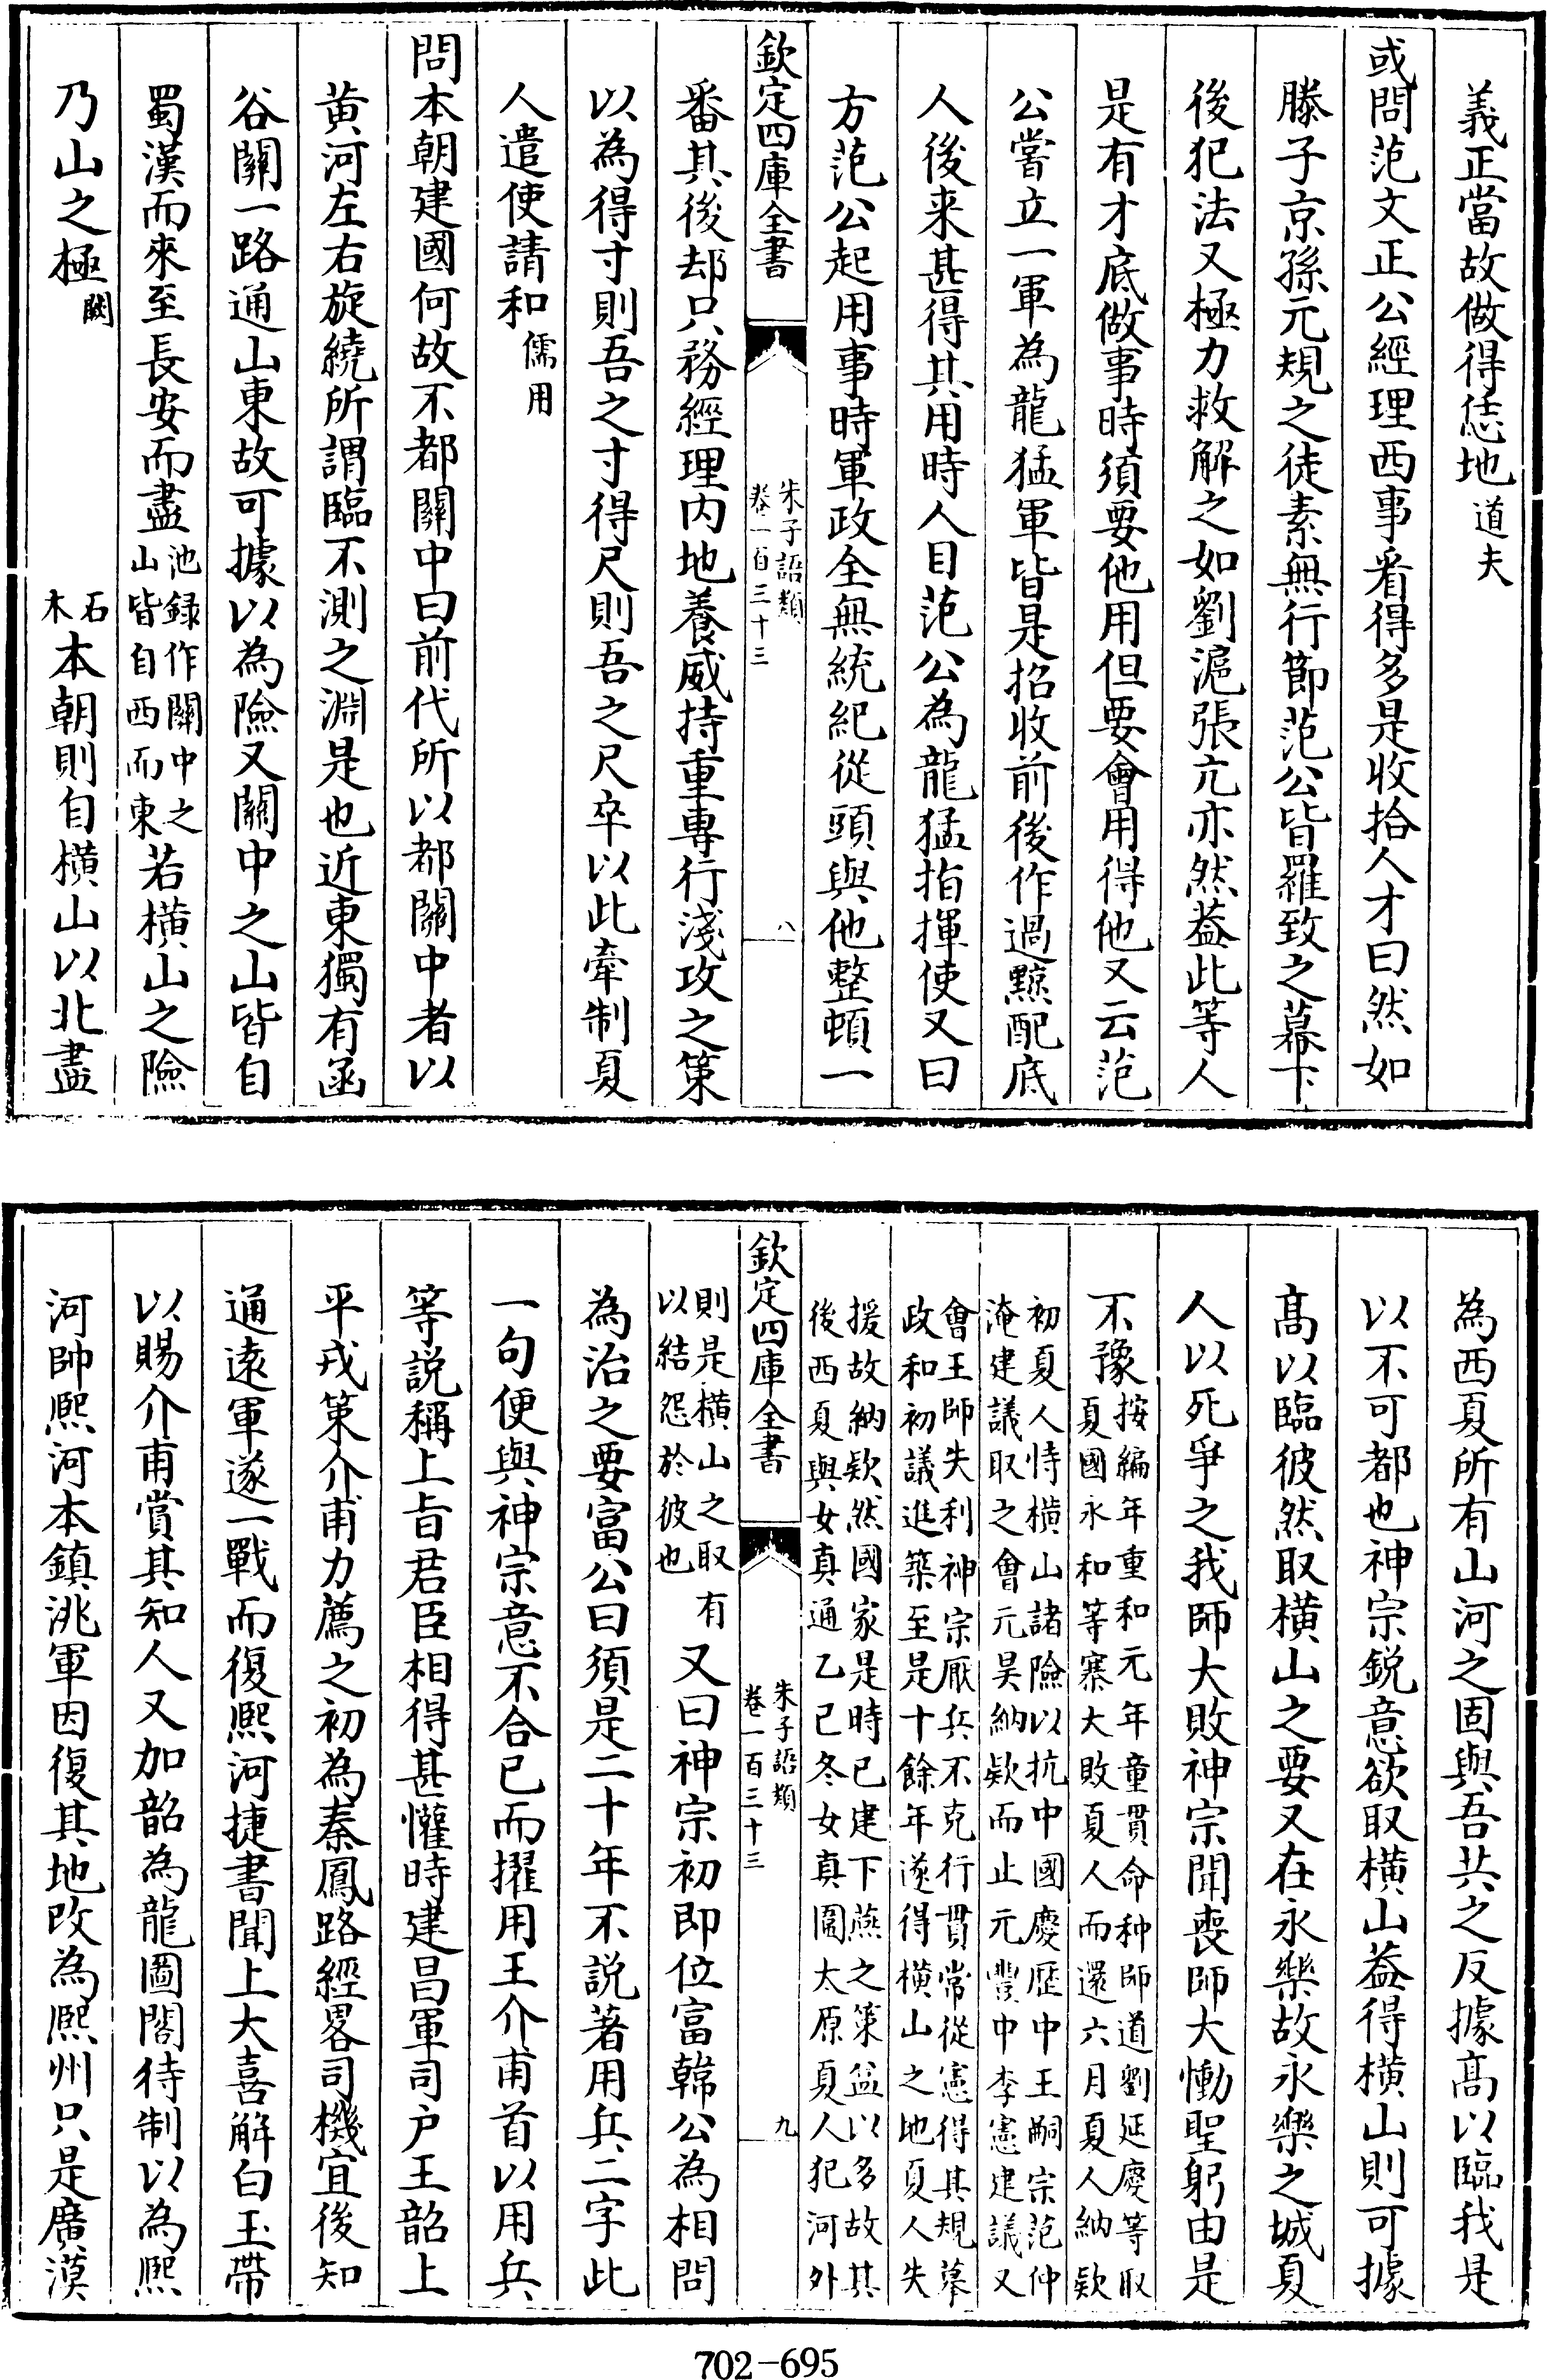 義正當故做得恁地道夫
或問范文正公經理西事看得多是收拾人才曰然如
滕子京孫元規之徒素無行節范公皆羅致之幕下
後犯法又極力救解之如劉滬張亢亦然葢此等人
是有才底做事時須要他用但要會用得他又云范
公嘗立一軍為龍猛軍皆是招收前後作過黥配底
人後来甚得其用時人目范公為龍猛指揮使又曰
方范公起用事時軍政全無統紀從頭與他整頓一
欽定四庫全書
朱子語類
卷一百三十三
八
番其後却只務經理内地養威持重專行淺攻之策
以為得寸則吾之寸得尺則吾之尺卒以此牽制夏
人遣使請和儒用
問本朝建國何故不都關中曰前代所以都關中者以
黄河左右旋繞所謂臨不測之淵是也近東獨有函
谷關一路通山東故可據以為險又關中之山皆自
蜀漢而來至長安而盡池録作關中之山皆自西而東若横山之險
乃山之極闕石木本朝則自横山以北盡
為西夏所有山河之固與吾共之反據髙以臨我是
以不可都也神宗鋭意欲取横山葢得横山則可據
髙以臨彼然取横山之要又在永樂故永樂之城夏
人以死爭之我師大敗神宗聞喪師大慟聖躬由是
不豫按編年重和元年童貫命种師道劉延慶等取夏國永和等寨大敗夏人而還六月夏人納欵
初夏人恃横山諸險以抗中國慶歴中王嗣宗范仲淹建議取之會元昊納欵而止元豐中李憲建議又
會王師失利神宗厭兵不克行貫常從憲得其規摹政和初議進築至是十餘年遂得横山之地夏人失
援故納欵然國家是時已建下燕之策益以多故其後西夏與女真通乙已冬女真圍太原夏人犯河外
欽定四庫全書
朱子語類
卷一百三十三
九
則是横山之取有以結怨於彼也又曰神宗初即位富韓公為相問
為治之要富公曰須是二十年不説著用兵二字此
一句便與神宗意不合已而擢用王介甫首以用兵
等説稱上旨君臣相得甚懽時建昌軍司户王韶上
平戎策介甫力薦之初為秦鳳路經畧司機宜後知
通逺軍遂一戰而復熙河捷書聞上大喜解白玉帶
以賜介甫賞其知人又加韶為龍圖閣待制以為熙
河帥熙河本鎮洮軍因復其地改為熙州只是廣漠
702-695